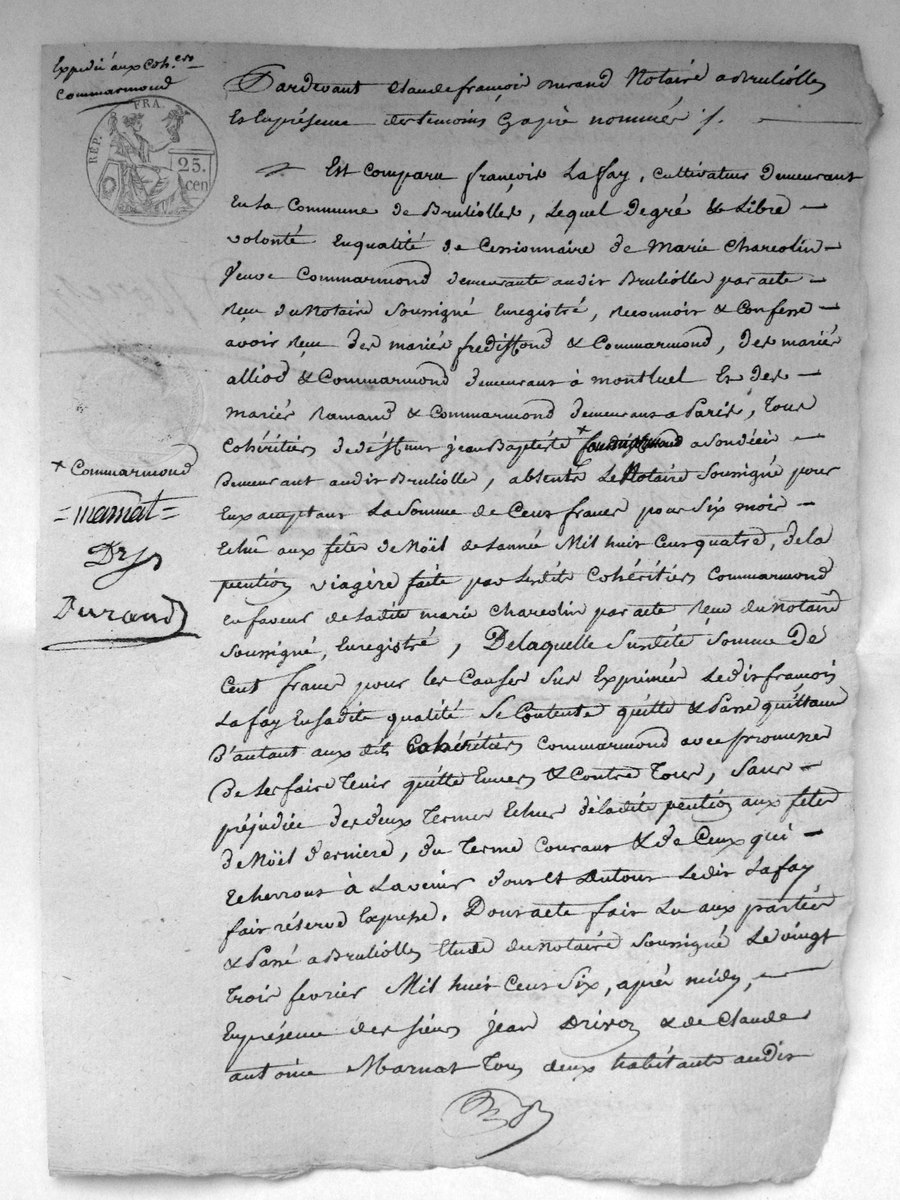 Expedié aux Coh.ers
Commarmond
REP. FRA.
25.
cen
Pardevant Claude françois Durand Notaire a Bruliolles
Et En présence des temoins Cy après nommés /. 
Est Comparu françois Lafay, Cultivateur Demeurant
En La Commune de Brulioller, Lequel de gré & Libre
volonté En qualité de Cessionnaire de Marie Chareolin
Veuve Commarmond demeurante audit Brulioller par acte
Recu du Notaire Soussigné Enregistré, Reconnoit & Confesse
avoir Recu des mariés fredi & Commarmond, des mariés
alliod & Commarmond demeurans à montluel Et des
mariés Ramand & Commarmond demeurans a Paris, Tous
Cohéritiers de défunt jean Baptiste + a Son décès
Demeurant audit Brulioller, absents Le Notaire Soussigné pour
Eux acceptant La Somme de Cent francs pour Six mois
Echû aux fêtes de Noël de Lannée Mil huit Cent quatre, de la
pention viagère faite par Lesdits Cohéritiers Commarmond
en faveur de Ladite marie Chareolin par acte Recu du notaire
Soussigné, Enregistré, De laquelle Susdite Somme De
Cent francs pour Les Causes Sus Exprimées Ledit françois
Lafay En Sadite qualité Se Contente quitte & Passe quittance
D'autant aux dits Cohéritiers Commarmond avec promesse
De les faire Tenir quitte Envers & Contre Tous, Sans
préjudice des deux Termes Echus de ladite pention aux fêtes
de Noël derniere, du Terme Courant & de Ceux qui
Echerront à Lavenir dont Et du tout Ledit Lafay
fait réserve Expresse. Dont acte fait Lu aux parties
& Passé a Brulioller Etude du Notaire Soussigné Le vingt
Trois fevrier Mil huit Cent Six, après midy,
En présence des Sieurs jean Drivon & de Claude
antoine Marnat Tous deux habitants audit
+ Commarmond
=marnat=
Durand